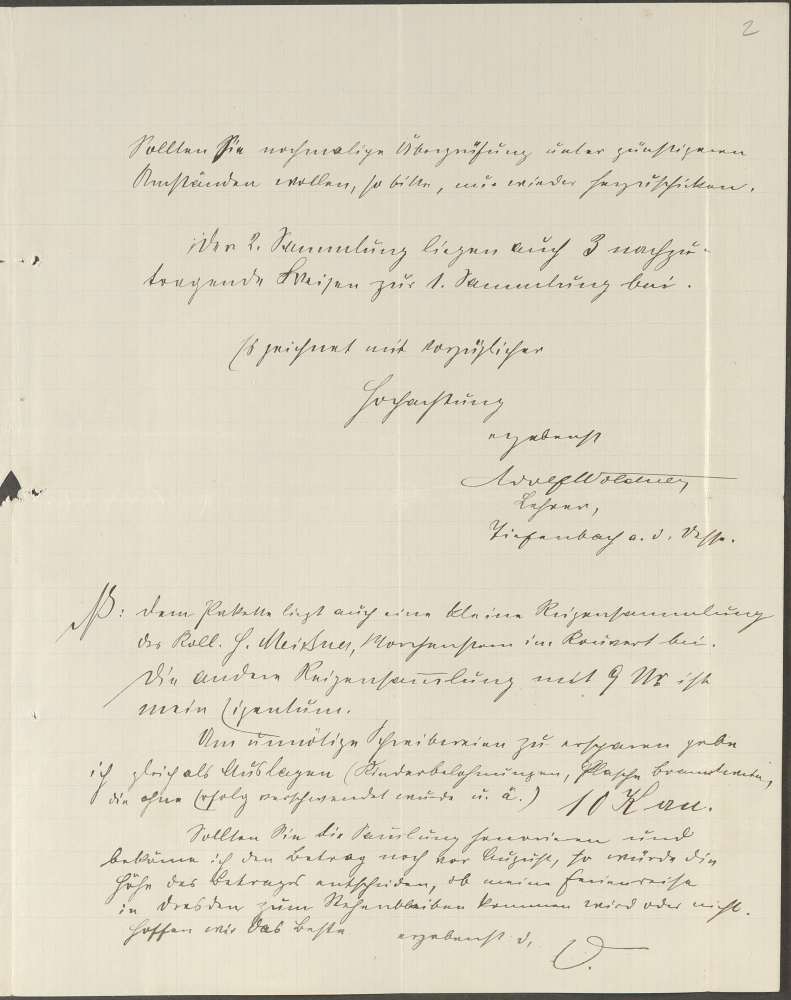 2
Sollten Sie nochmalige Überprüfung unter günstigeren
Umständen wollen, so bitte, nur wieder herzuschicken.
Der 2. Sammlung liegen auch 3 nachzu-
tragende Weisen zur 1. Sammlung bei.
Es zeichnet mit vorzüglicher
Hochachtung
ergebenst
Adolf Woldner
Lehrer,
Tiefenbach a. d. Desse.
NB: Dem Pakette liegt auch eine kleine Reigensammlung
des Koll. H. Meißner, Morchenstern im Kouvert bei.
Die andere Reigensam̅lung mit 9 Nr ist
mein Eigentum.
Um unnötige Schreibereien zu ersparen gebe
ich gleich als Auslagen (Kinderbelohnungen, Flasche Branntwein,
die ohne Erfolg verschwendet wurde u. ä.) 10 K an.
Sollten Sie die Sam̅lung honorieren und
bekäme ich den Betrag noch vor August, so würde die
Höhe des Betrages entscheiden, ob meine Ferienreise
in Dresden zum Stehenbleiben kommen wird oder nicht.
Hoffen wir das Beste ergebenst d.